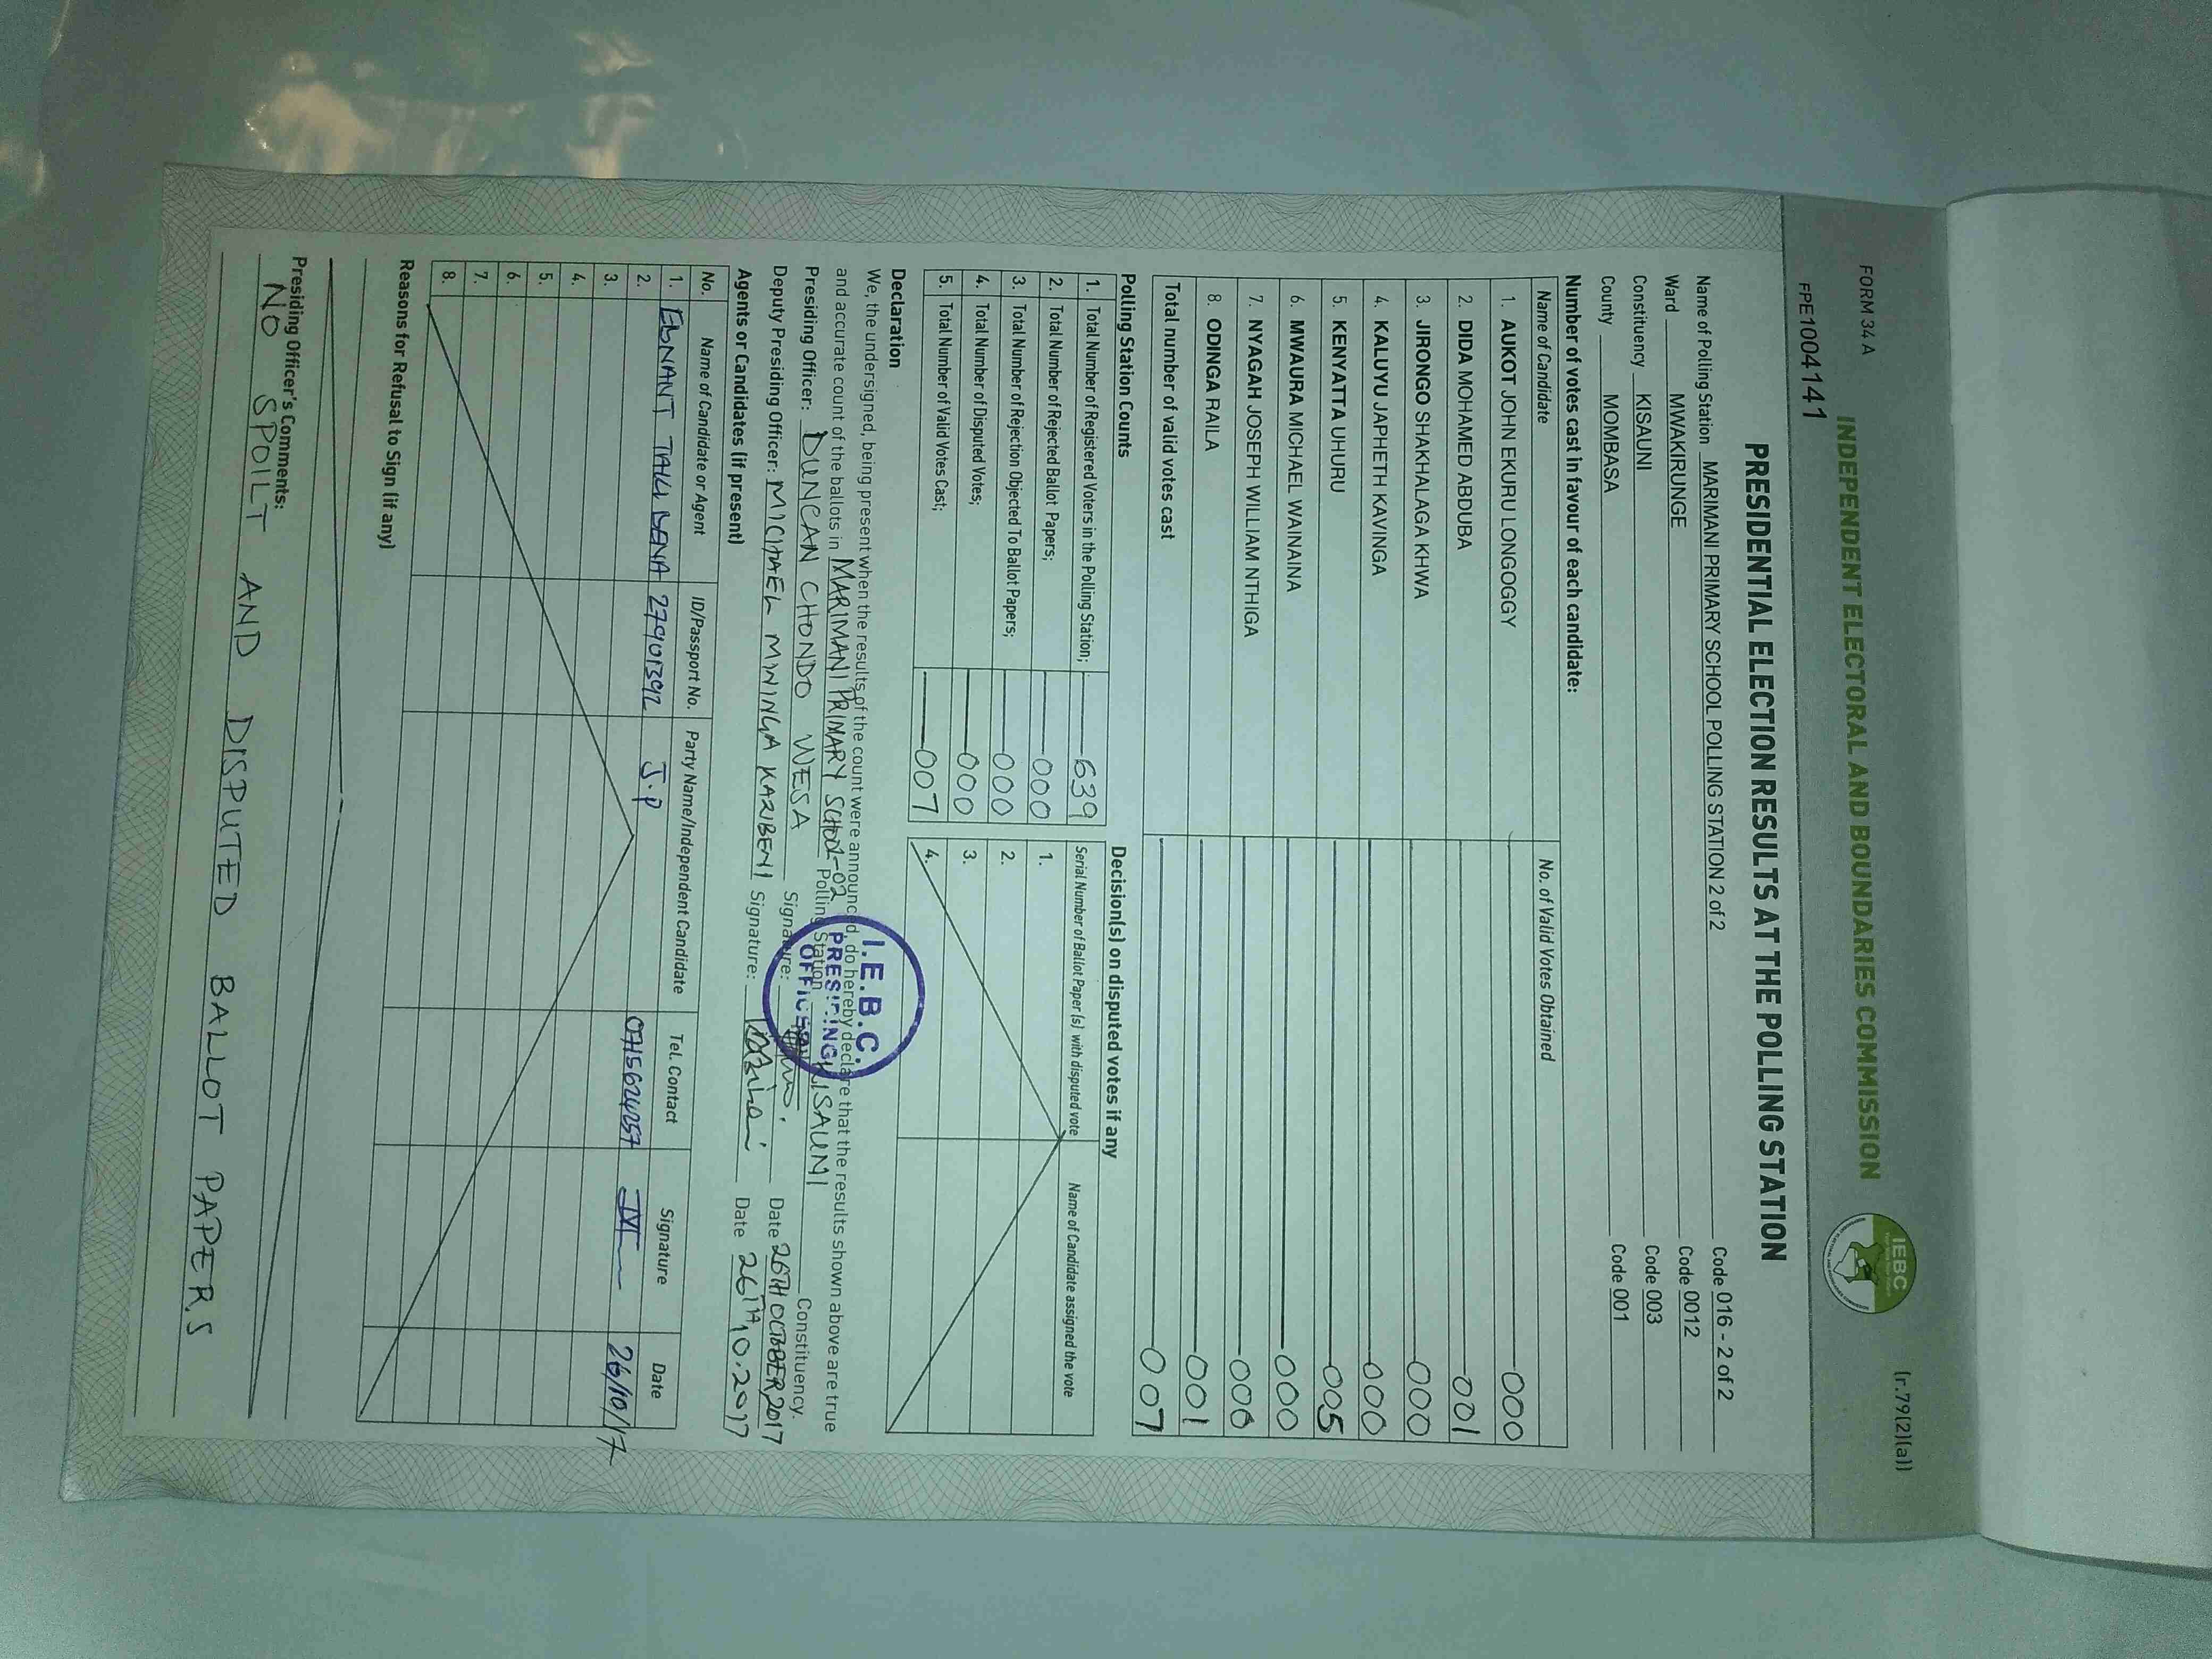 FORM 34 A
(r.79(2)(a))
INDEPENDENT ELECTORAL AND BOUNDARIES COMMISSION
IEBC
FPE1004141
PRESIDENTIAL ELECTION RESULTS AT THE POLLING STATION
Name of Polling Station MARIMANI PRIMARY SCHOOL POLLING STATION 2 of 2 Code 016 - 2 of 2
Ward MWAKIRUNGE Code 0012
Constituency KISAUNI Code 003
County MOMBASA Code 001
Number of votes cast in favour of each candidate:
Name of Candidate No. of Valid Votes Obtained
1. AUKOT JOHN EKURU LONGOGGY 000
2. DIDA MOHAMED ABDUBA 001
3. JIRONGO SHAKHALAGA KHWA 000
4. KALUYU JAPHETH KAVINGA 000
5. KENYATTA UHURU 005
6. MWAURA MICHAEL WAINAINA 000
7. NYAGAH JOSEPH WILLIAM NTHIGA 000
8. ODINGA RAILA 001
Total number of valid votes cast 007
Polling Station Counts
1. Total Number of Registered Voters in the Polling Station; 639
2. Total Number of Rejected Ballot Papers; 000
3. Total Number of Rejection Objected To Ballot Papers; 000
4. Total Number of Disputed Votes; 000
5. Total Number of Valid Votes Cast; 007
Decision(s) on disputed votes if any
Serial Number of Ballot Paper (s) with disputed vote Name of Candidate assigned the vote
1.
2.
3.
4.
Declaration
We, the undersigned, being present when the results of the count were announced, do hereby declare that the results shown above are true
and accurate count of the ballots in MARIMANI PRIMARY SCHOOL-02 Polling Station KISAUNI Constituency.
Presiding Officer: DUNCAN CHONDO WESA Signature: Date 26TH OCTOBER 2017
Deputy Presiding Officer: MICHAEL MININGA KARIBENI Signature: Date 26TH 10.2017
I.E.B.C.
PRESIDING
OFFICER
Agents or Candidates (if present)
No. Name of Candidate or Agent ID/Passport No. Party Name/Independent Candidate Tel. Contact Signature Date
1. 27901392 J.P 0715624257 26/10/17
2.
3.
4.
5.
6.
7.
8.
Reasons for Refusal to Sign (if any)
Presiding Officer's Comments:
NO SPOILT AND DISPUTED BALLOT PAPERS